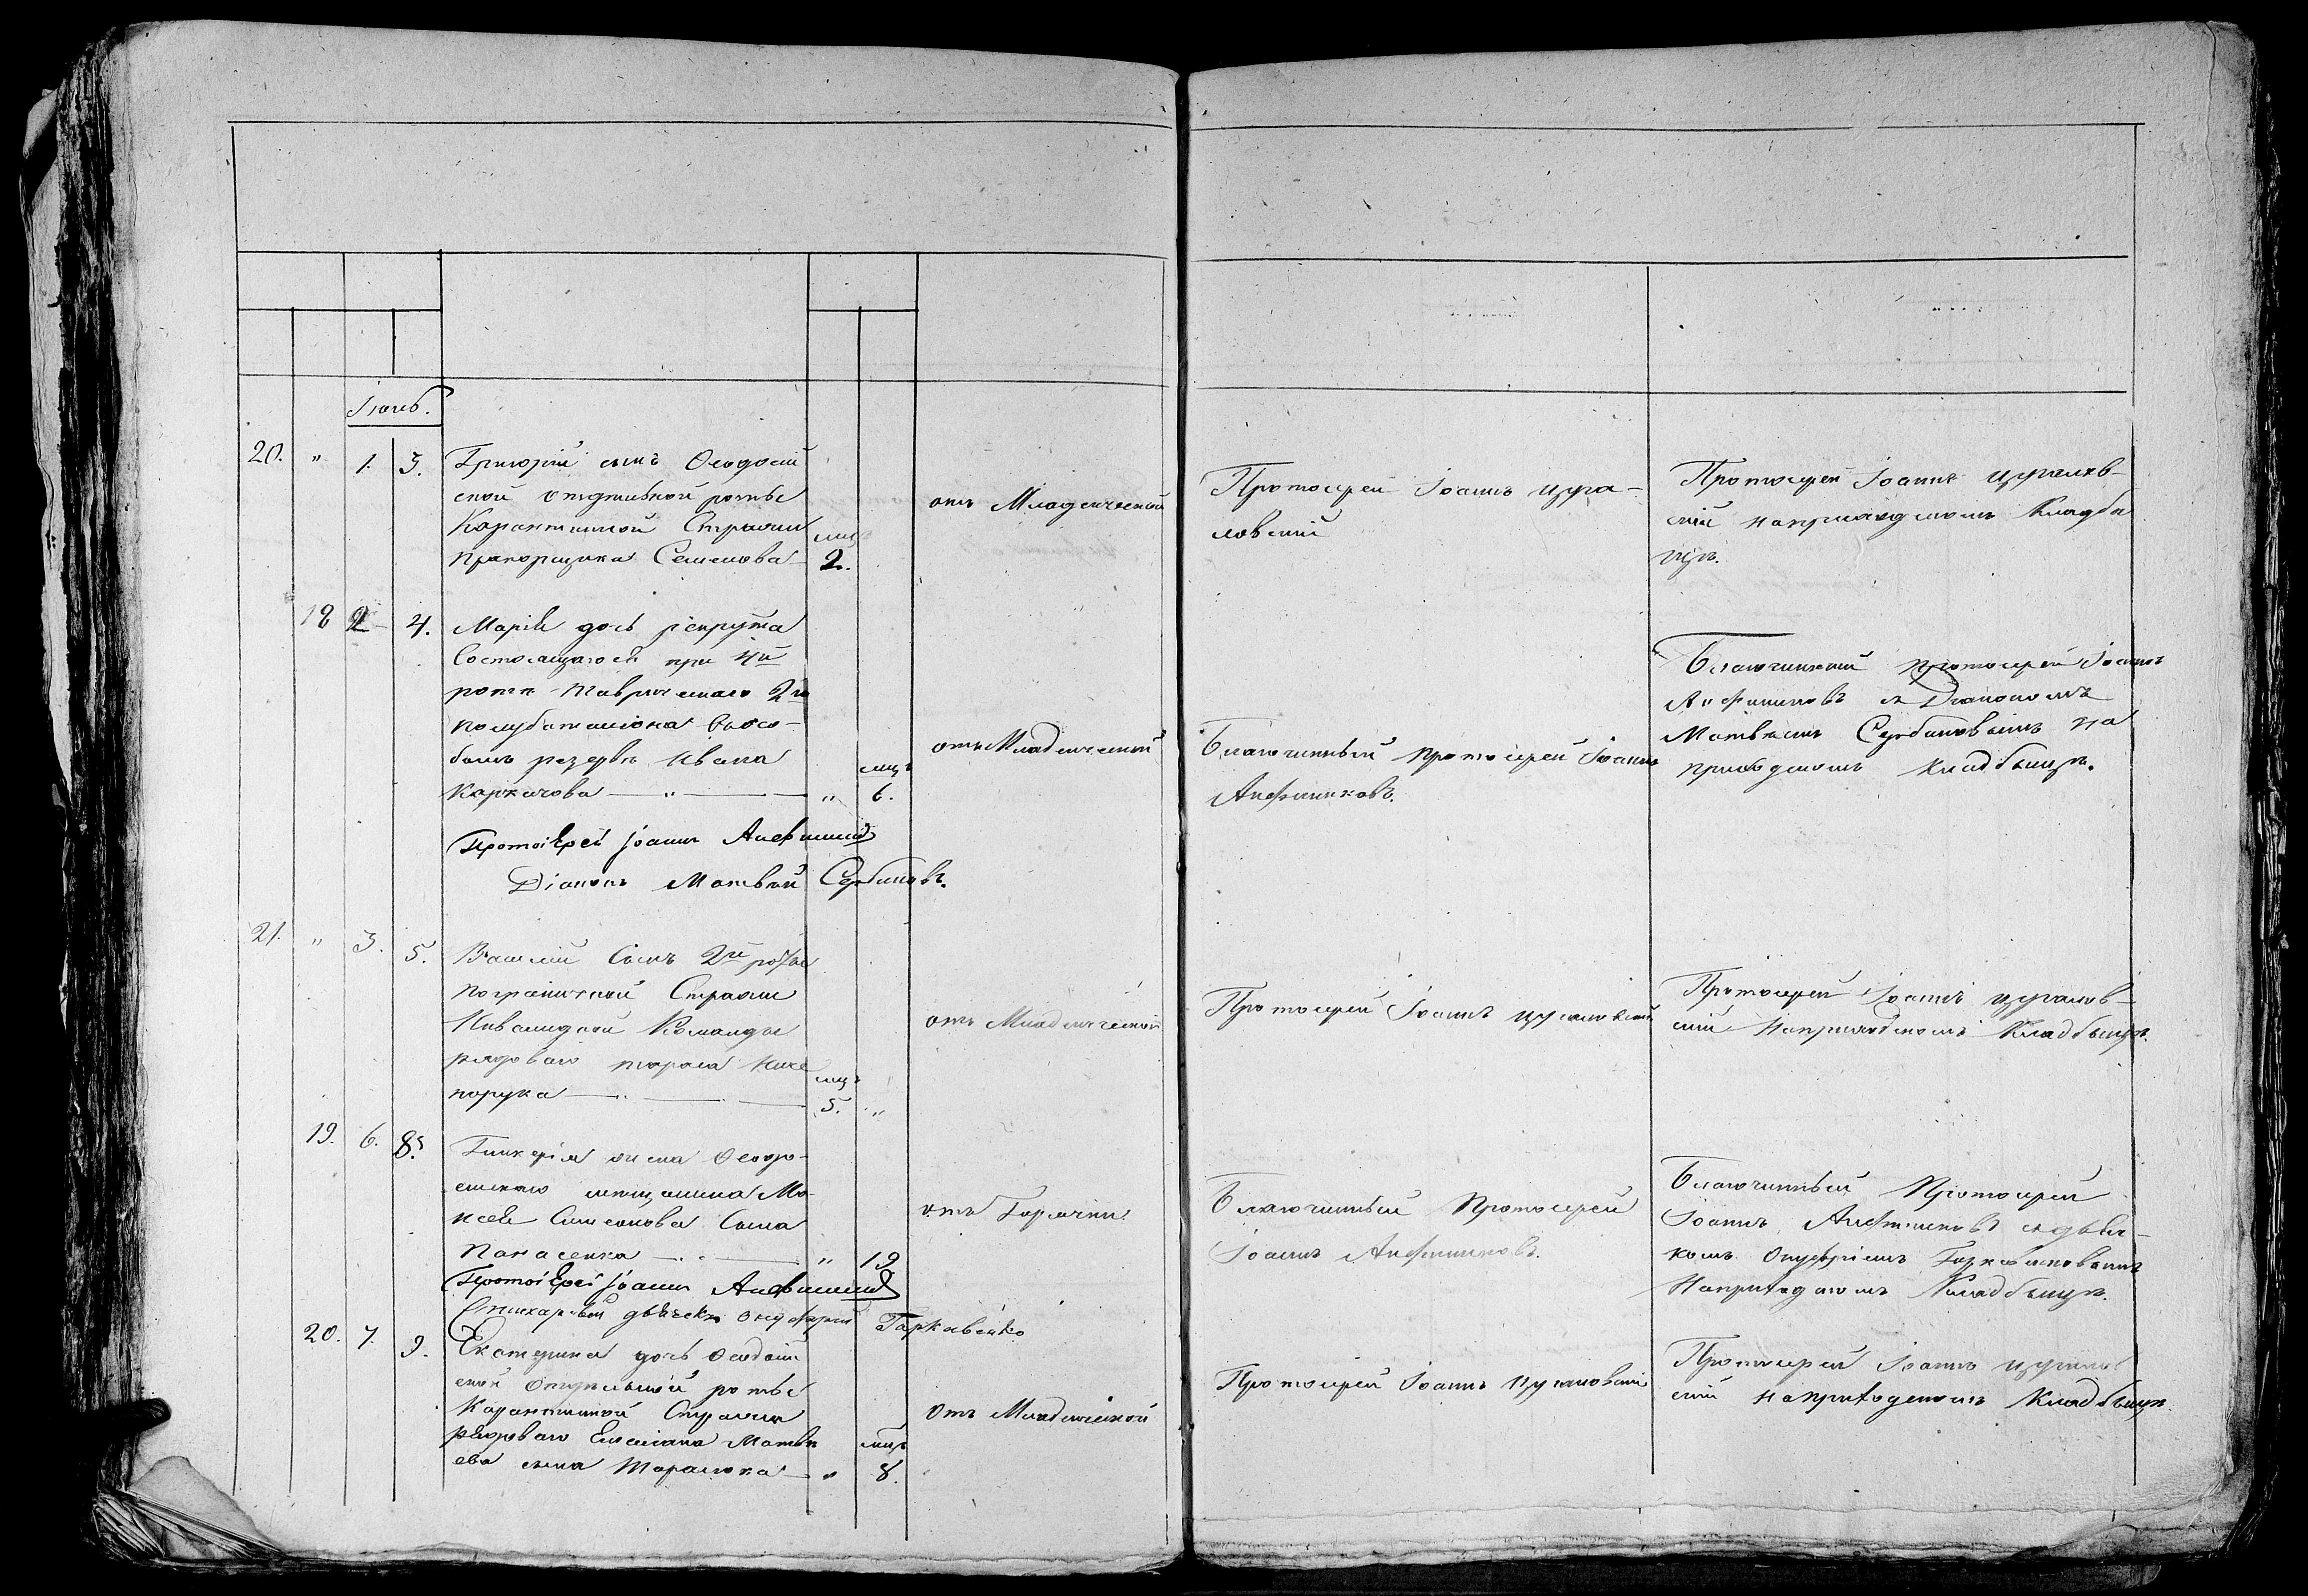 Іюнь.
20. „ 1. 3. Григорій сынъ Ѳеодосій
ской отдѣльной роты
Карантинной Стражи
прапорщика Семенова
мѣц.
2.
отъ Младенческой
Протоіерей Іоаннъ Цура-
ловскій
Протоіерей Іоаннъ
скій на приходскомъ Кладби
щѣ.
18 2 4. Марія дочь рекрута
Состоящагося при 4й
роты Таврическаго 2го
полубаталіона
резервѣ Ивана
„ мѣц.
6.
отъ Младенческой
Благочинный протоіерей Іоаннъ
Анфиниковъ.
Благочинный протоіерей Іоаннъ
Анфиниковъ съ Діакономъ
Матвѣемъ Сербиновымъ на
приходскомъ кладбищѣ.
Протоіерей Іоаннъ
Діаконъ Матвѣй Сербиновъ.
21. „ 3. 5. Василій Сынъ 2й роты
пограничной Стражи
Инвалидной Команды
рядоваго Тараса Ники
порука
мѣц.
5. „
отъ Младенческой
Протоіерей Іоаннъ
Протоіерей Іоаннъ
скій на приходскомъ Кладбищѣ.
19. 6. 8. Гликерія жена Ѳеодо-
сійскаго мѣщанина Мо-
исея Симеонова Сына
Панасенка „ 19
отъ Горячки.
Благочинный Протоіерей
Іоаннъ Анфиниковъ.
Благочинный Протоіерей
Іоаннъ Анфиниковъ съ дьяч-
комъ Онуфріемъ
На приходскомъ Кладбищѣ.
Протоіерей Іоаннъ
Стихарный дьячекъ Онуфрій Гаркавенко
20. 7. 9. Екатерина дочь Ѳеодосій
ской отдѣльной роты
Карантинной Стражи
рядоваго Емеліана Матвѣ
ева сына Таранюка „
мѣц.
8.
отъ Младенческой
Протоіерей Іоаннъ
Протоіерей Іоаннъ
скій на приходскомъ Кладбищѣ